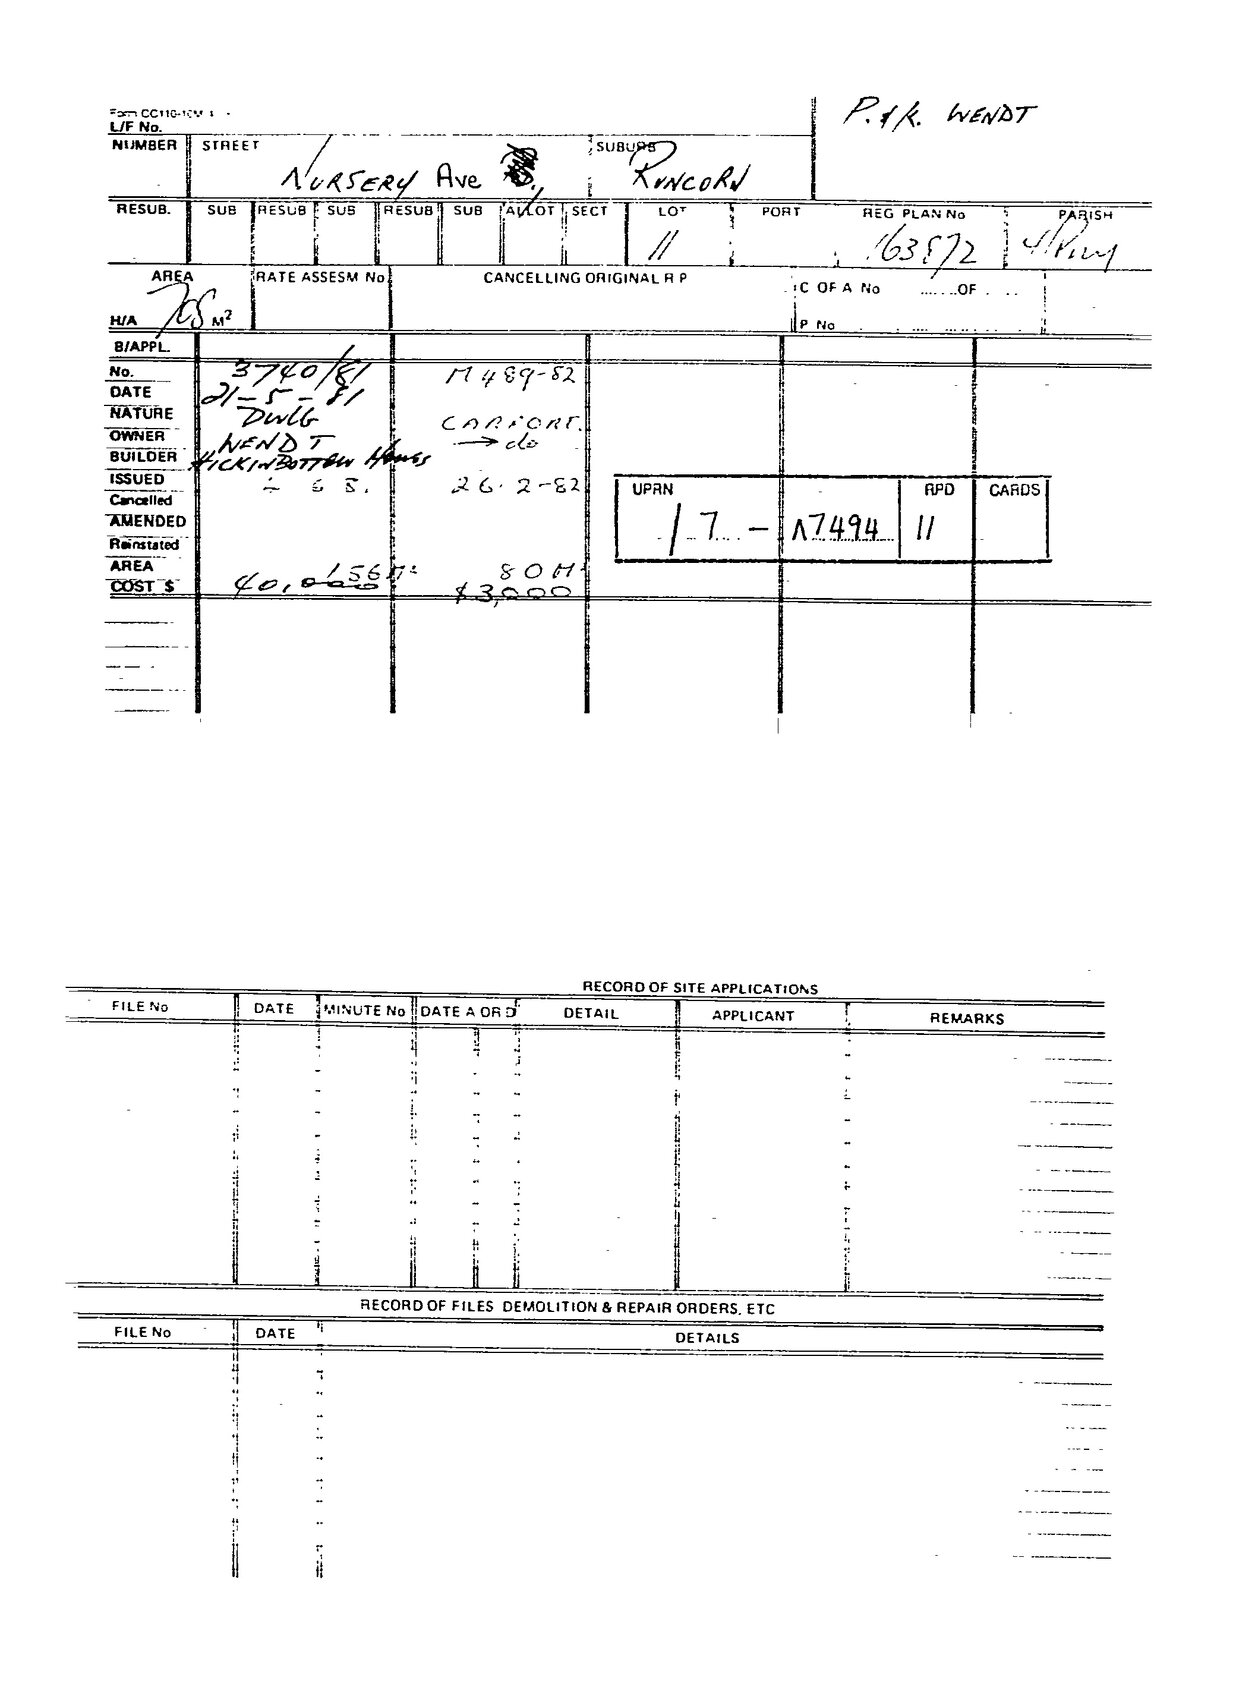 P. & K. WENDT
L/F No.
NUMBER STREET SUBURB
NURSERY Ave RUNCORN
RESUB. SUB RESUB SUB RESUB SUB ALLOT SECT LOT PORT REG PLAN No PARISH
11 163872
AREA RATE ASSESM No CANCELLING ORIGINAL R P C OF A No ...... OF ....
H/A 708 M² P No
B/APPL.
No. 3740/81 M 489-82
DATE 21-5-81
NATURE DWLG CARPORT.
OWNER WENDT → do
BUILDER HICKINBOTTOM HOMES
ISSUED 26.2-82
Cancelled
AMENDED
Reinstated
AREA 156 M² 80 M²
COST $ 40,000 $3,000
UPRN RPD CARDS
17 - 17494 11
RECORD OF SITE APPLICATIONS
FILE No DATE MINUTE No DATE A OR D DETAIL APPLICANT REMARKS
RECORD OF FILES DEMOLITION & REPAIR ORDERS, ETC
FILE No DATE DETAILS